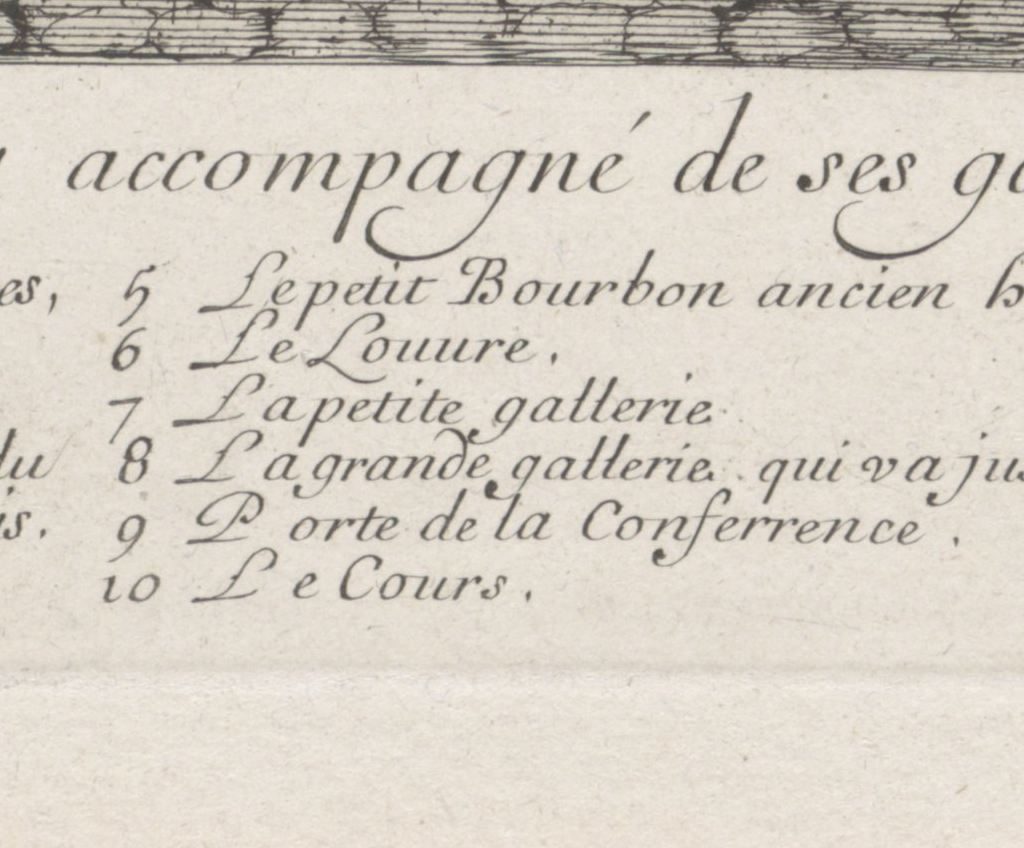 accompagné de ses
es, 5 Le petit Bourbon ancien
6 Le Louure.
7 La petite gallerie
du 8 La grande gallerie. qui va jus
is. 9 Porte de la Conferrence.
10 Le Cours.